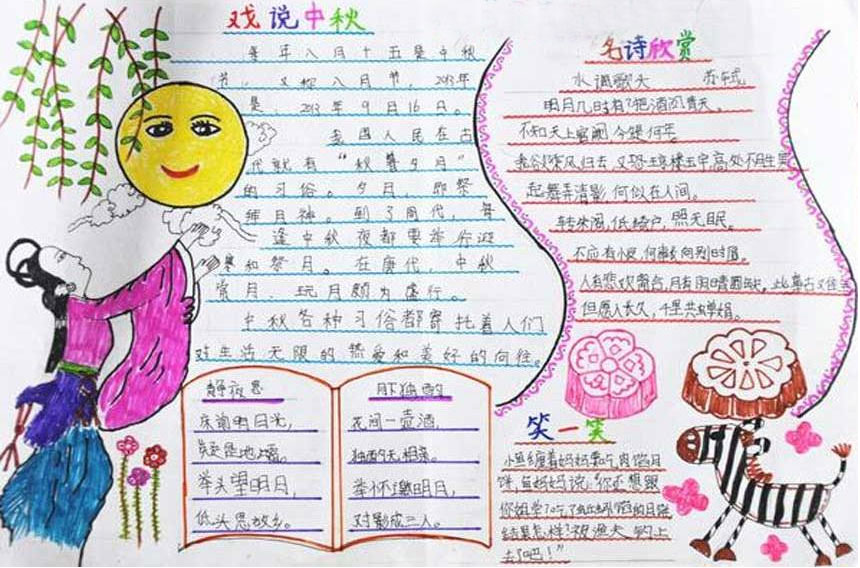 戏说中秋
每年八月十五是中秋
节，又称八月节，2013年
是，2013年9月16日。
我国人民在古
代就有“秋暮夕月”
的习俗。夕月，即祭
拜月神。到了周代，每
逢中秋夜都要举行迎
寒和祭月。在唐代，中秋
赏月、玩月颇为盛行。
中秋各种习俗都寄托着人们
对生活无限的热爱和美好的向往。
静夜思
床前明月光，
疑是地上霜。
举头望明月，
低头思故乡。
月下独酌
花间一壶酒，
独酌无相亲。
举杯邀明月，
对影成三人。
名诗欣赏
水调歌头 苏轼
明月几时有？把酒问青天。
不知天上宫阙，今夕是何年。
我欲乘风归去，又恐琼楼玉宇，高处不胜寒
起舞弄清影，何似在人间。
转朱阁，低绮户，照无眠。
不应有恨，何事长向别时圆。
人有悲欢离合，月有阴晴圆缺，此事古难全
但愿人长久，千里共婵娟。
笑一笑
小鱼缠着妈妈要吃肉馅月
饼，鱼妈妈说：“你还想跟
你姐学？吃了蚯蚓馅的月饼
结果怎样？被渔夫钓上
去了吧！”